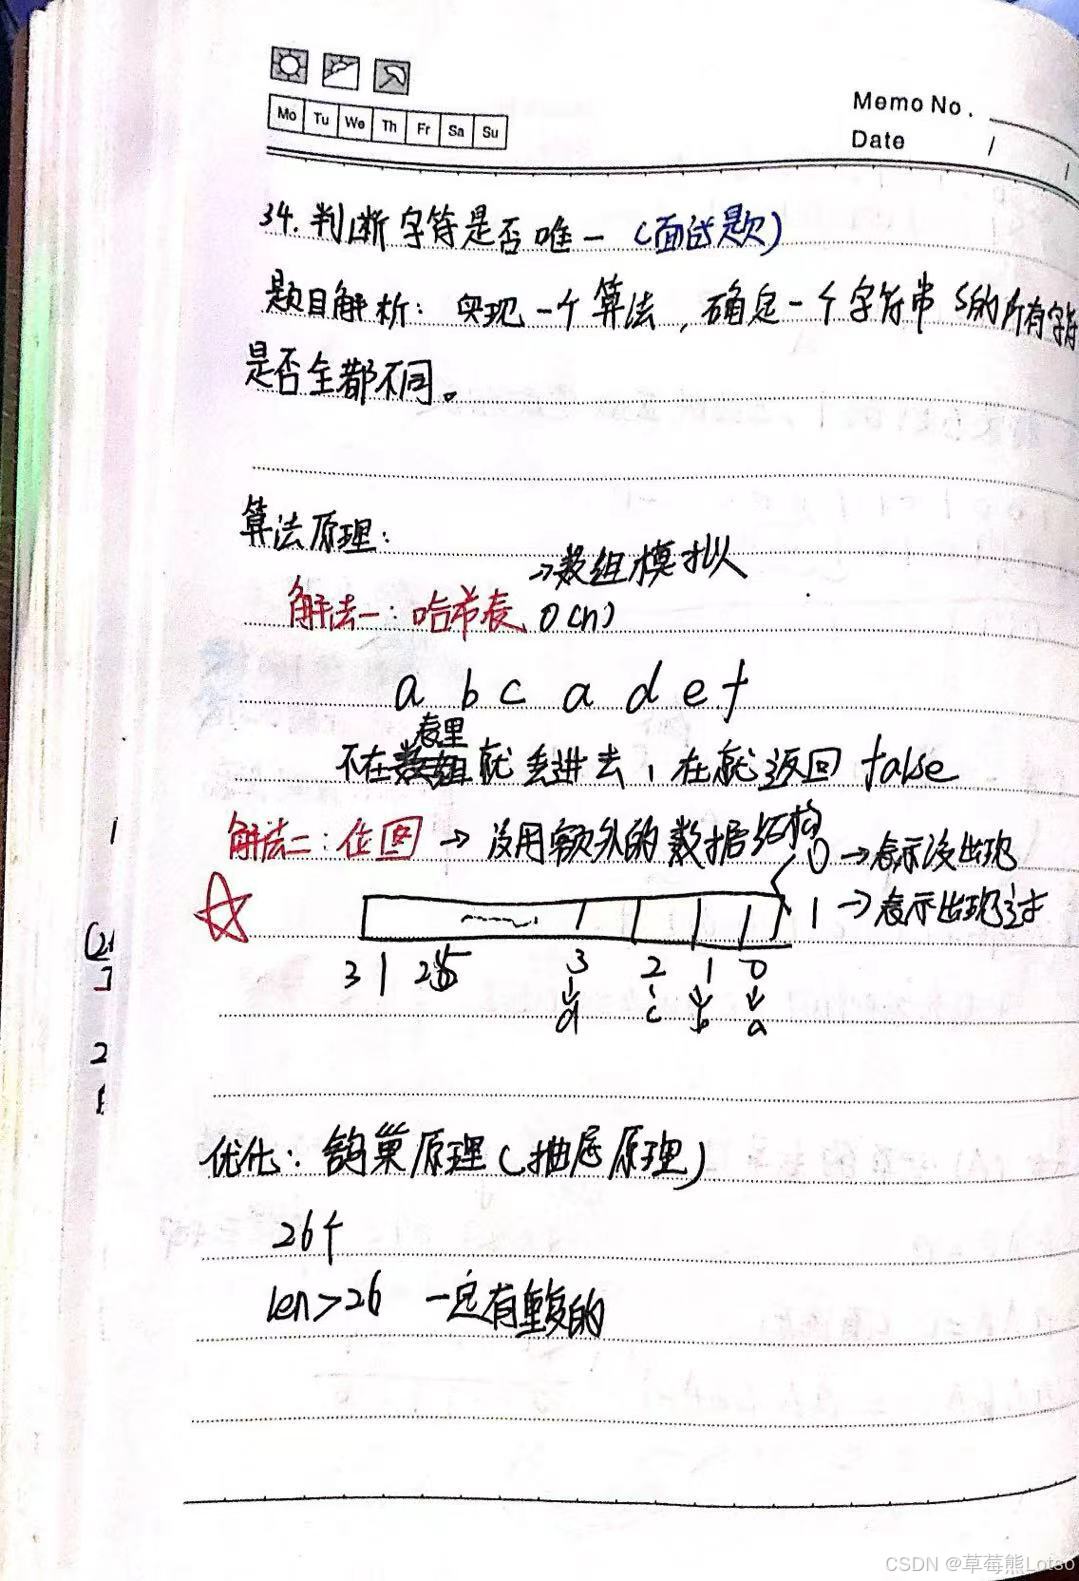 Memo No.
Mo Tu We Th Fr Sa Su
Date / /
34. 判断字符是否唯一（面试题）
题目解析：实现一个算法，确定一个字符串 s的所有字符
是否全都不同。
算法原理：
→数组模拟
解法一：哈希表 O(n)
a b c a d e f
表里
不在数组就丢进去，在就返回 false
解法二：位图 → 没用额外的数据结构
0 →表示没出现
1 →表示出现过
31 25 3 2 1 0
d c b a
优化：鸽巢原理（抽屉原理）
26个
len>26 一定有重复的
1
2
CSDN @草莓熊Lotso